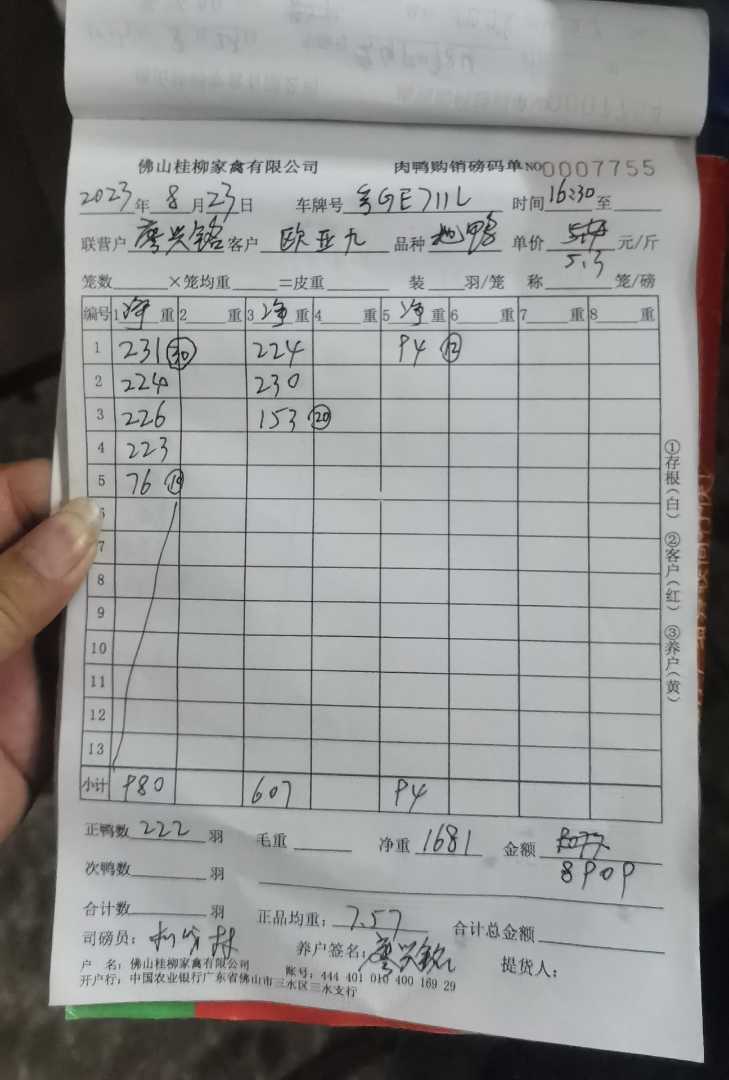 佛山桂柳家禽有限公司 肉鸭购销磅码单 NO 0007755
2023年 8月23日 车牌号 粤GE711L 时间 16:30 至
联营户 廖兴铭 客户 欧亚九 品种 单价 5.3 元/斤
笼数 ×笼均重 =皮重 装 羽/笼 称 笼/磅
编号 1 净重 2 重 3 净重 4 重 5 净重 6 重 7 重 8 重
1 231 30 224 94 12
2 224 230
3 226 153 20
4 223
5 76
7
8
9
10
11
12
13
小计 980 607 94
正鸭数 222 羽 毛重 净重 1681 金额 8909
次鸭数 羽
合计数 羽 正品均重: 7.57 合计总金额
司磅员: 养户签名: 廖兴铭 提货人:
户 名: 佛山桂柳家禽有限公司 账号: 444 401 010 400 169 29
开户行: 中国农业银行广东省佛山市三水区三水支行
①存根(白) ②客户(红) ③养户(黄)